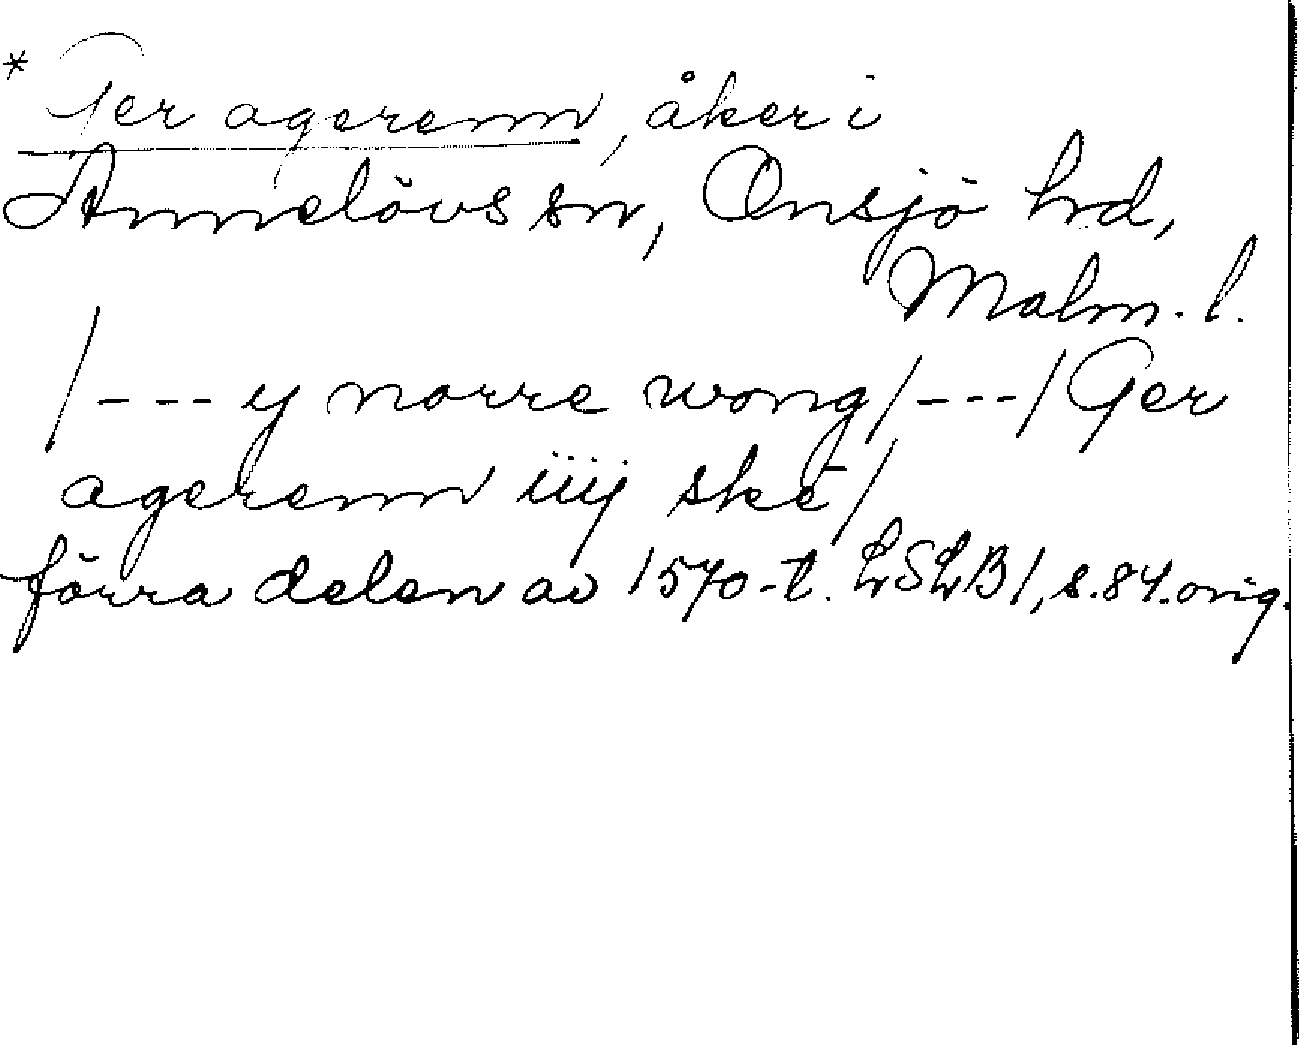 * Ger agerenn, åker i
Annelövs sn, Onsjö hd,
Malm. l.
/--- y norre wong/---/ Ger
agerenn iiij ske/
förra delen av 1570-t. LSLB1, s. 84. orig.